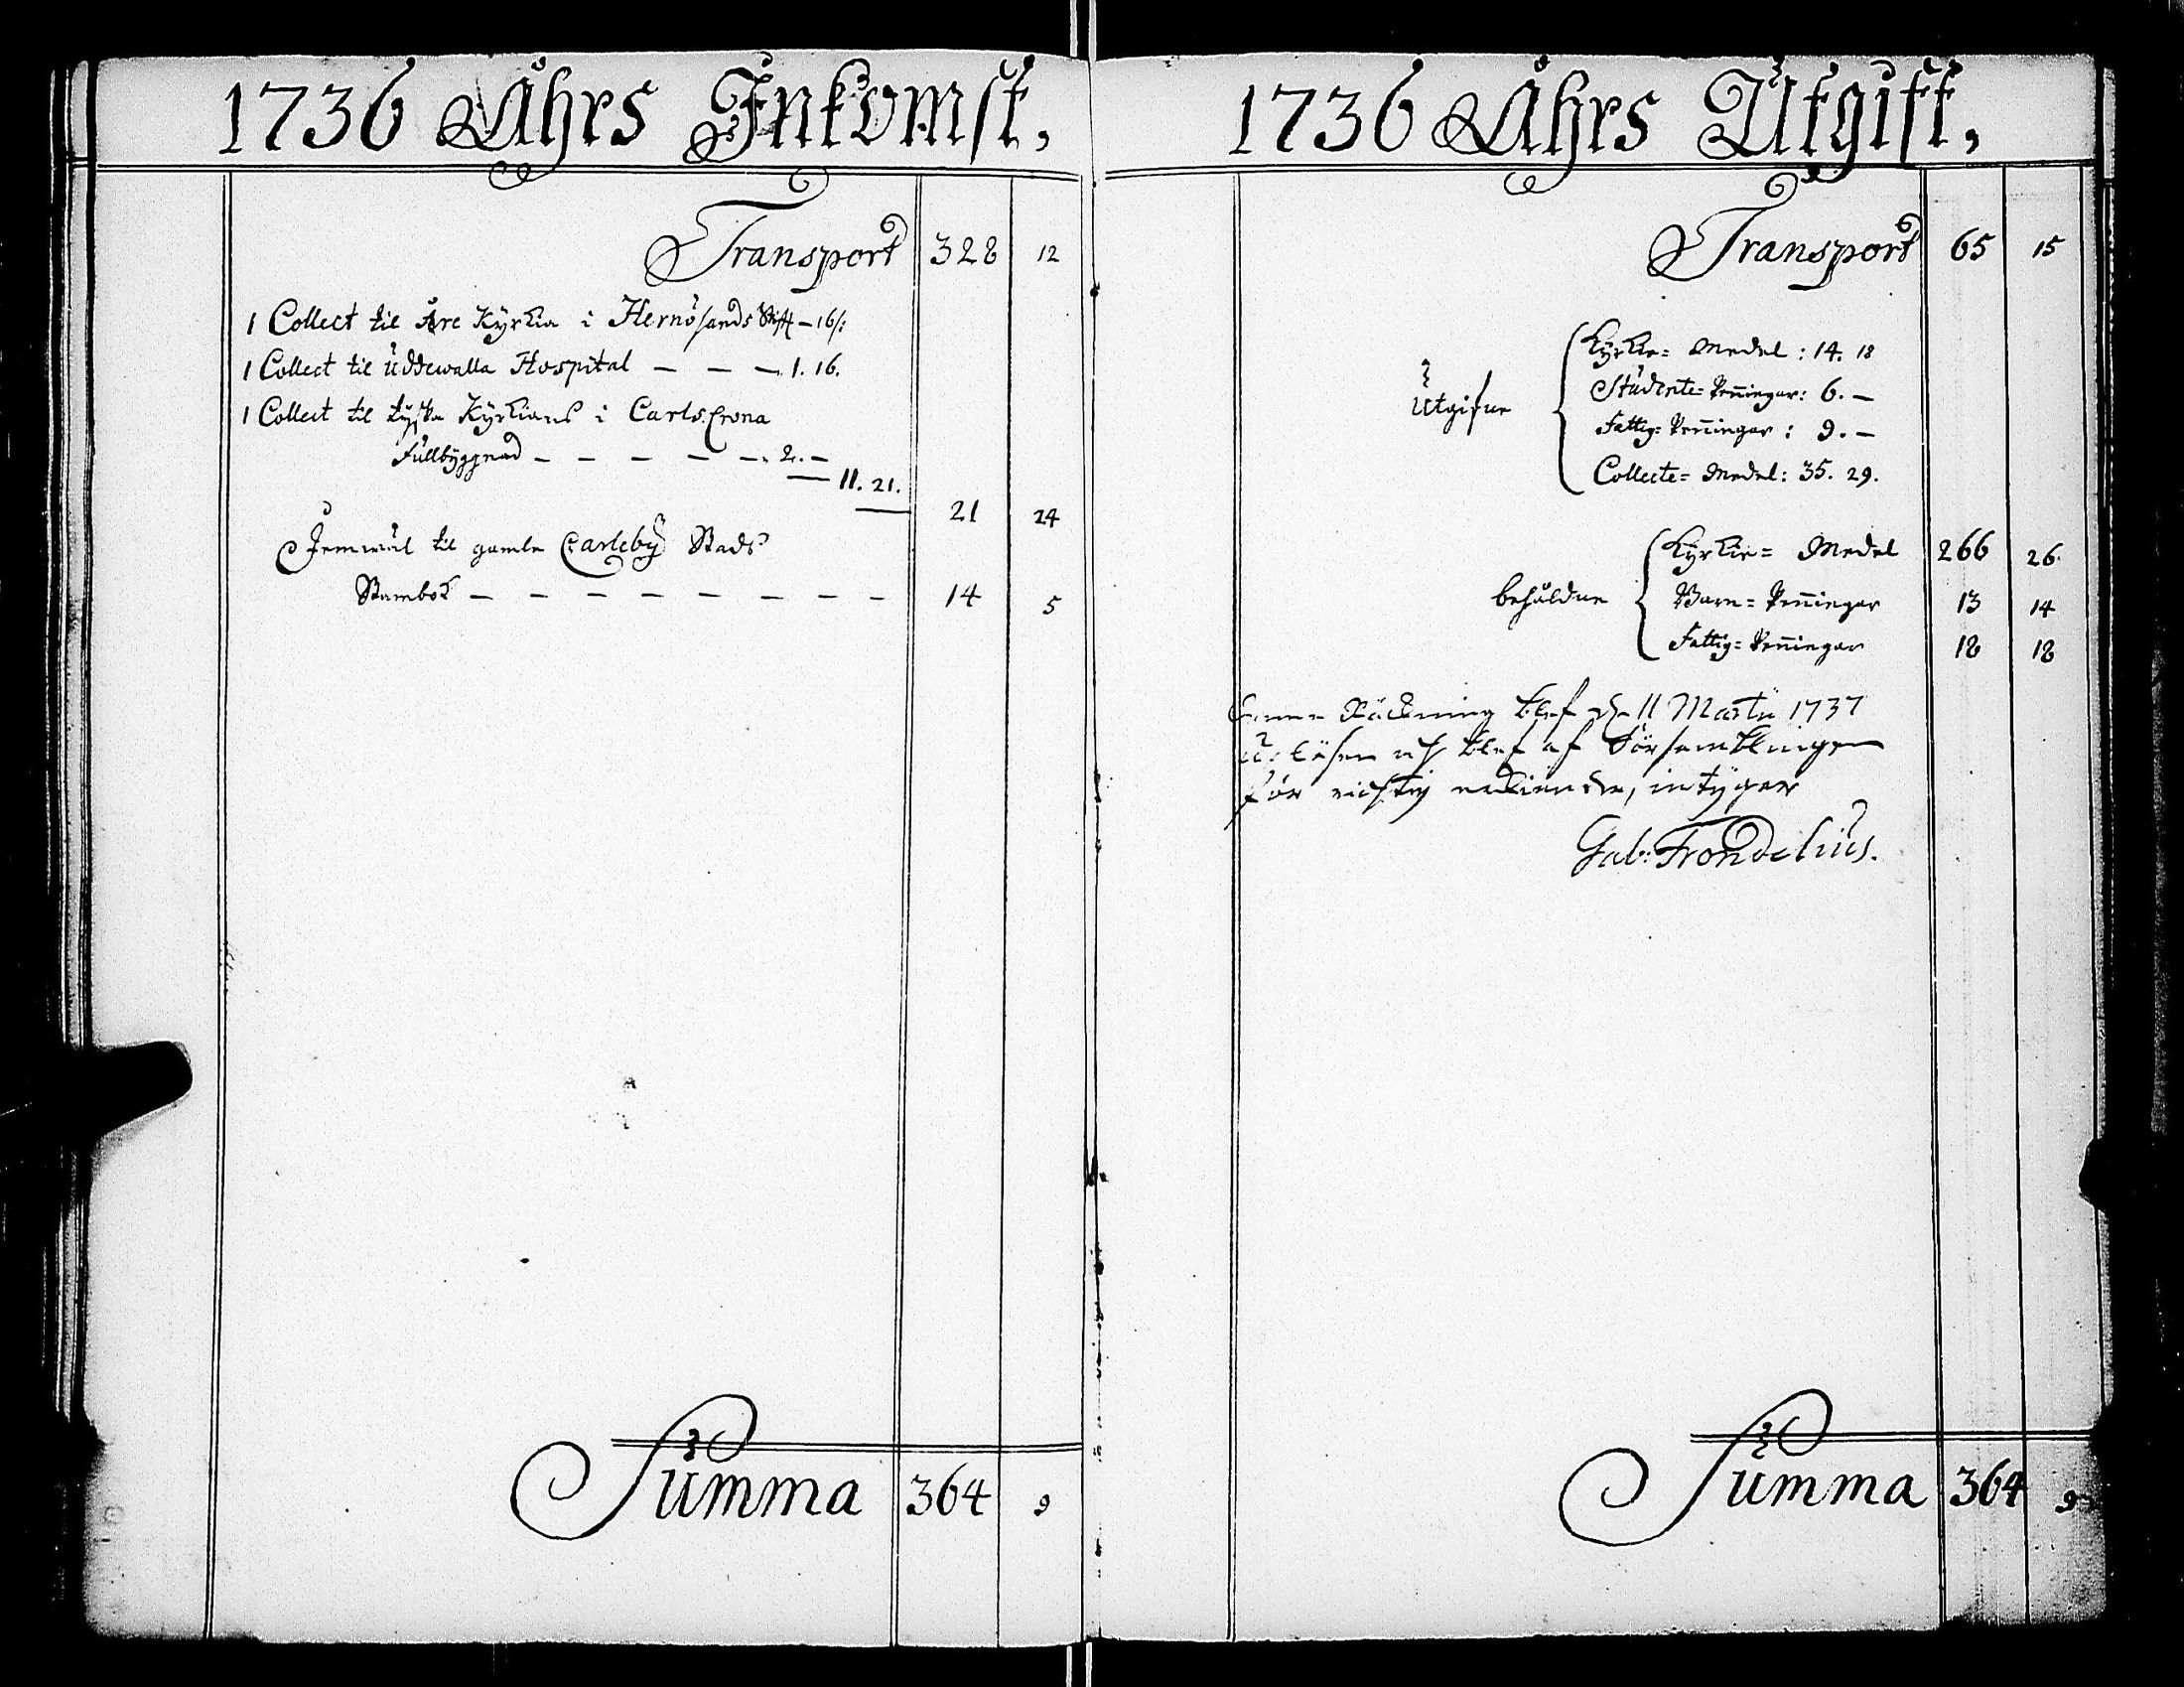 1736 Åhrs Inkomst,
Transport 328 12
1 Collect til Åre Kyrkia i Hernösands Stift – 16/:
1 Collect til Uddewalla Hospital – – – 1. 16.
1 Collect til tyska Kyrkians i Carls:Crona
Fullbyggnad – – – – – 2. –
11. 21.
21 24
Jemwäl til gamle Carleby Stads
Stambok – – – – – – – – 14 5
Summa 364 9
1736 Åhrs Utgift,
Transport 65 15
Kyrkie= Medel: 14. 18
Studente= Penningar: 6. –
Utgifne
Fattig= Penningar: 9. –
Collecte= Medel: 35. 29.
Kyrkie= Medel 266 26.
behåldne Barn= Penningar 13 14
Fattig= Penningar 18 18
Denna Räckning blef d. 11 Martii 1737
up läsen och blef af Församblingen
för richtig erkiend, intygar
Gab: Frondelius.
Summa 364 9